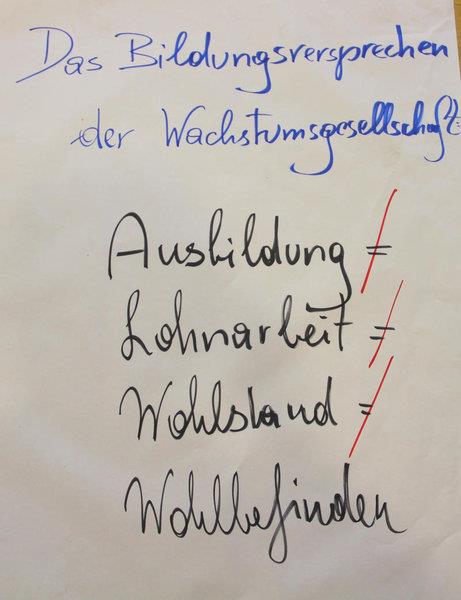 Das Bildungsversprechen
der Wachstumsgesellschaft:
Ausbildung ≠
Lohnarbeit ≠
Wohlstand ≠
Wohlbefinden